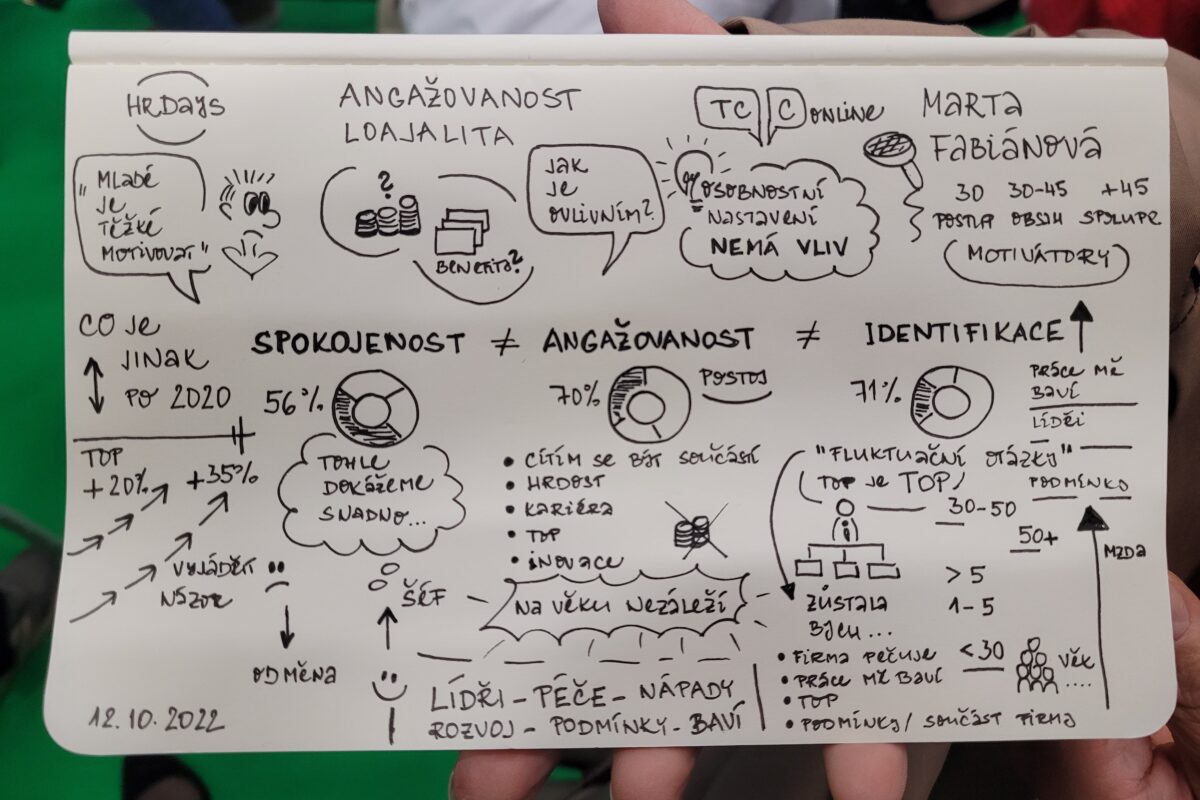 HRDAYS
ANGAŽOVANOST
LOAJALITA
TC C ONLINE
MARTA
FABIÁNOVÁ
"MLADÉ
JE
TĚŽKÉ
MOTIVOVAT"
?
BENEFITY?
JAK
JE
OVLIVNÍM?
OSOBNOSTNÍ
NASTAVENÍ
NEMÁ VLIV
30 30-45 +45
POSTUP OBSAH SPOLUPR
MOTIVÁTORY
CO JE
JINAK
PO 2020
SPOKOJENOST ≠ ANGAŽOVANOST ≠ IDENTIFIKACE
56%
70%
POSTOJ
71%
PRÁCE MĚ
BAVÍ
LÍDŘI
PODMÍNKY
TOP
+20% +35%
VYJÁDŘIT
NÁZOR
ODMĚNA
TOHLE
DOKÁŽEME
SNADNO...
ŠÉF
• CÍTÍM SE BÝT SOUČÁSTÍ
• HRDOST
• KARIÉRA
• TOP
• INOVACE
NA VĚKU NEZÁLEŽÍ
"FLUKTUAČNÍ OTÁZKY"
TOP JE TOP!
30-50
50+
> 5
1-5
<30
MZDA
VĚK
....
ZŮSTALA
BYCH...
• FIRMA PEČUJE
• PRÁCE MĚ BAVÍ
• TOP
• PODMÍNKY/ SOUČÁST FIRMY
LÍDŘI - PÉČE - NÁPADY
ROZVOJ - PODMÍNKY - BAVÍ
12.10.2022